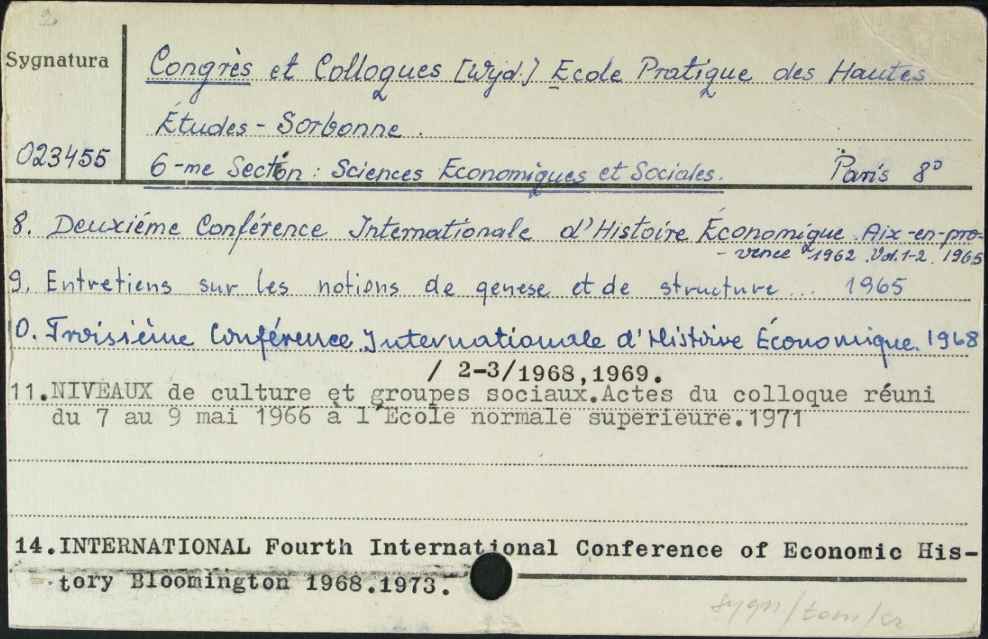 Sygnatura
Congrès et Colloques [Wyd.] Ecole Pratique des Hautes
Études - Sorbonne.
023455
6-me Section : Sciences Economiques et Sociales. Paris 8°
8. Deuxiéme Conférence Internationale d'Histoire Économique. Aix-en-pro-
- vence 1962. Vol. 1-2. 1965
9. Entretiens sur les notions de genese et de structure ... 1965
10. Troisième Conférence Internationale d'Histoire Économique. 1968
/ 2-3/1968,1969.
11. NIVEAUX de culture et groupes sociaux.Actes du colloque réuni
du 7 au 9 mai 1966 à l'Ecole normale superieure.1971
14.INTERNATIONAL Fourth International Conference of Economic His-
tory Bloomington 1968.1973.
sygn/tom/